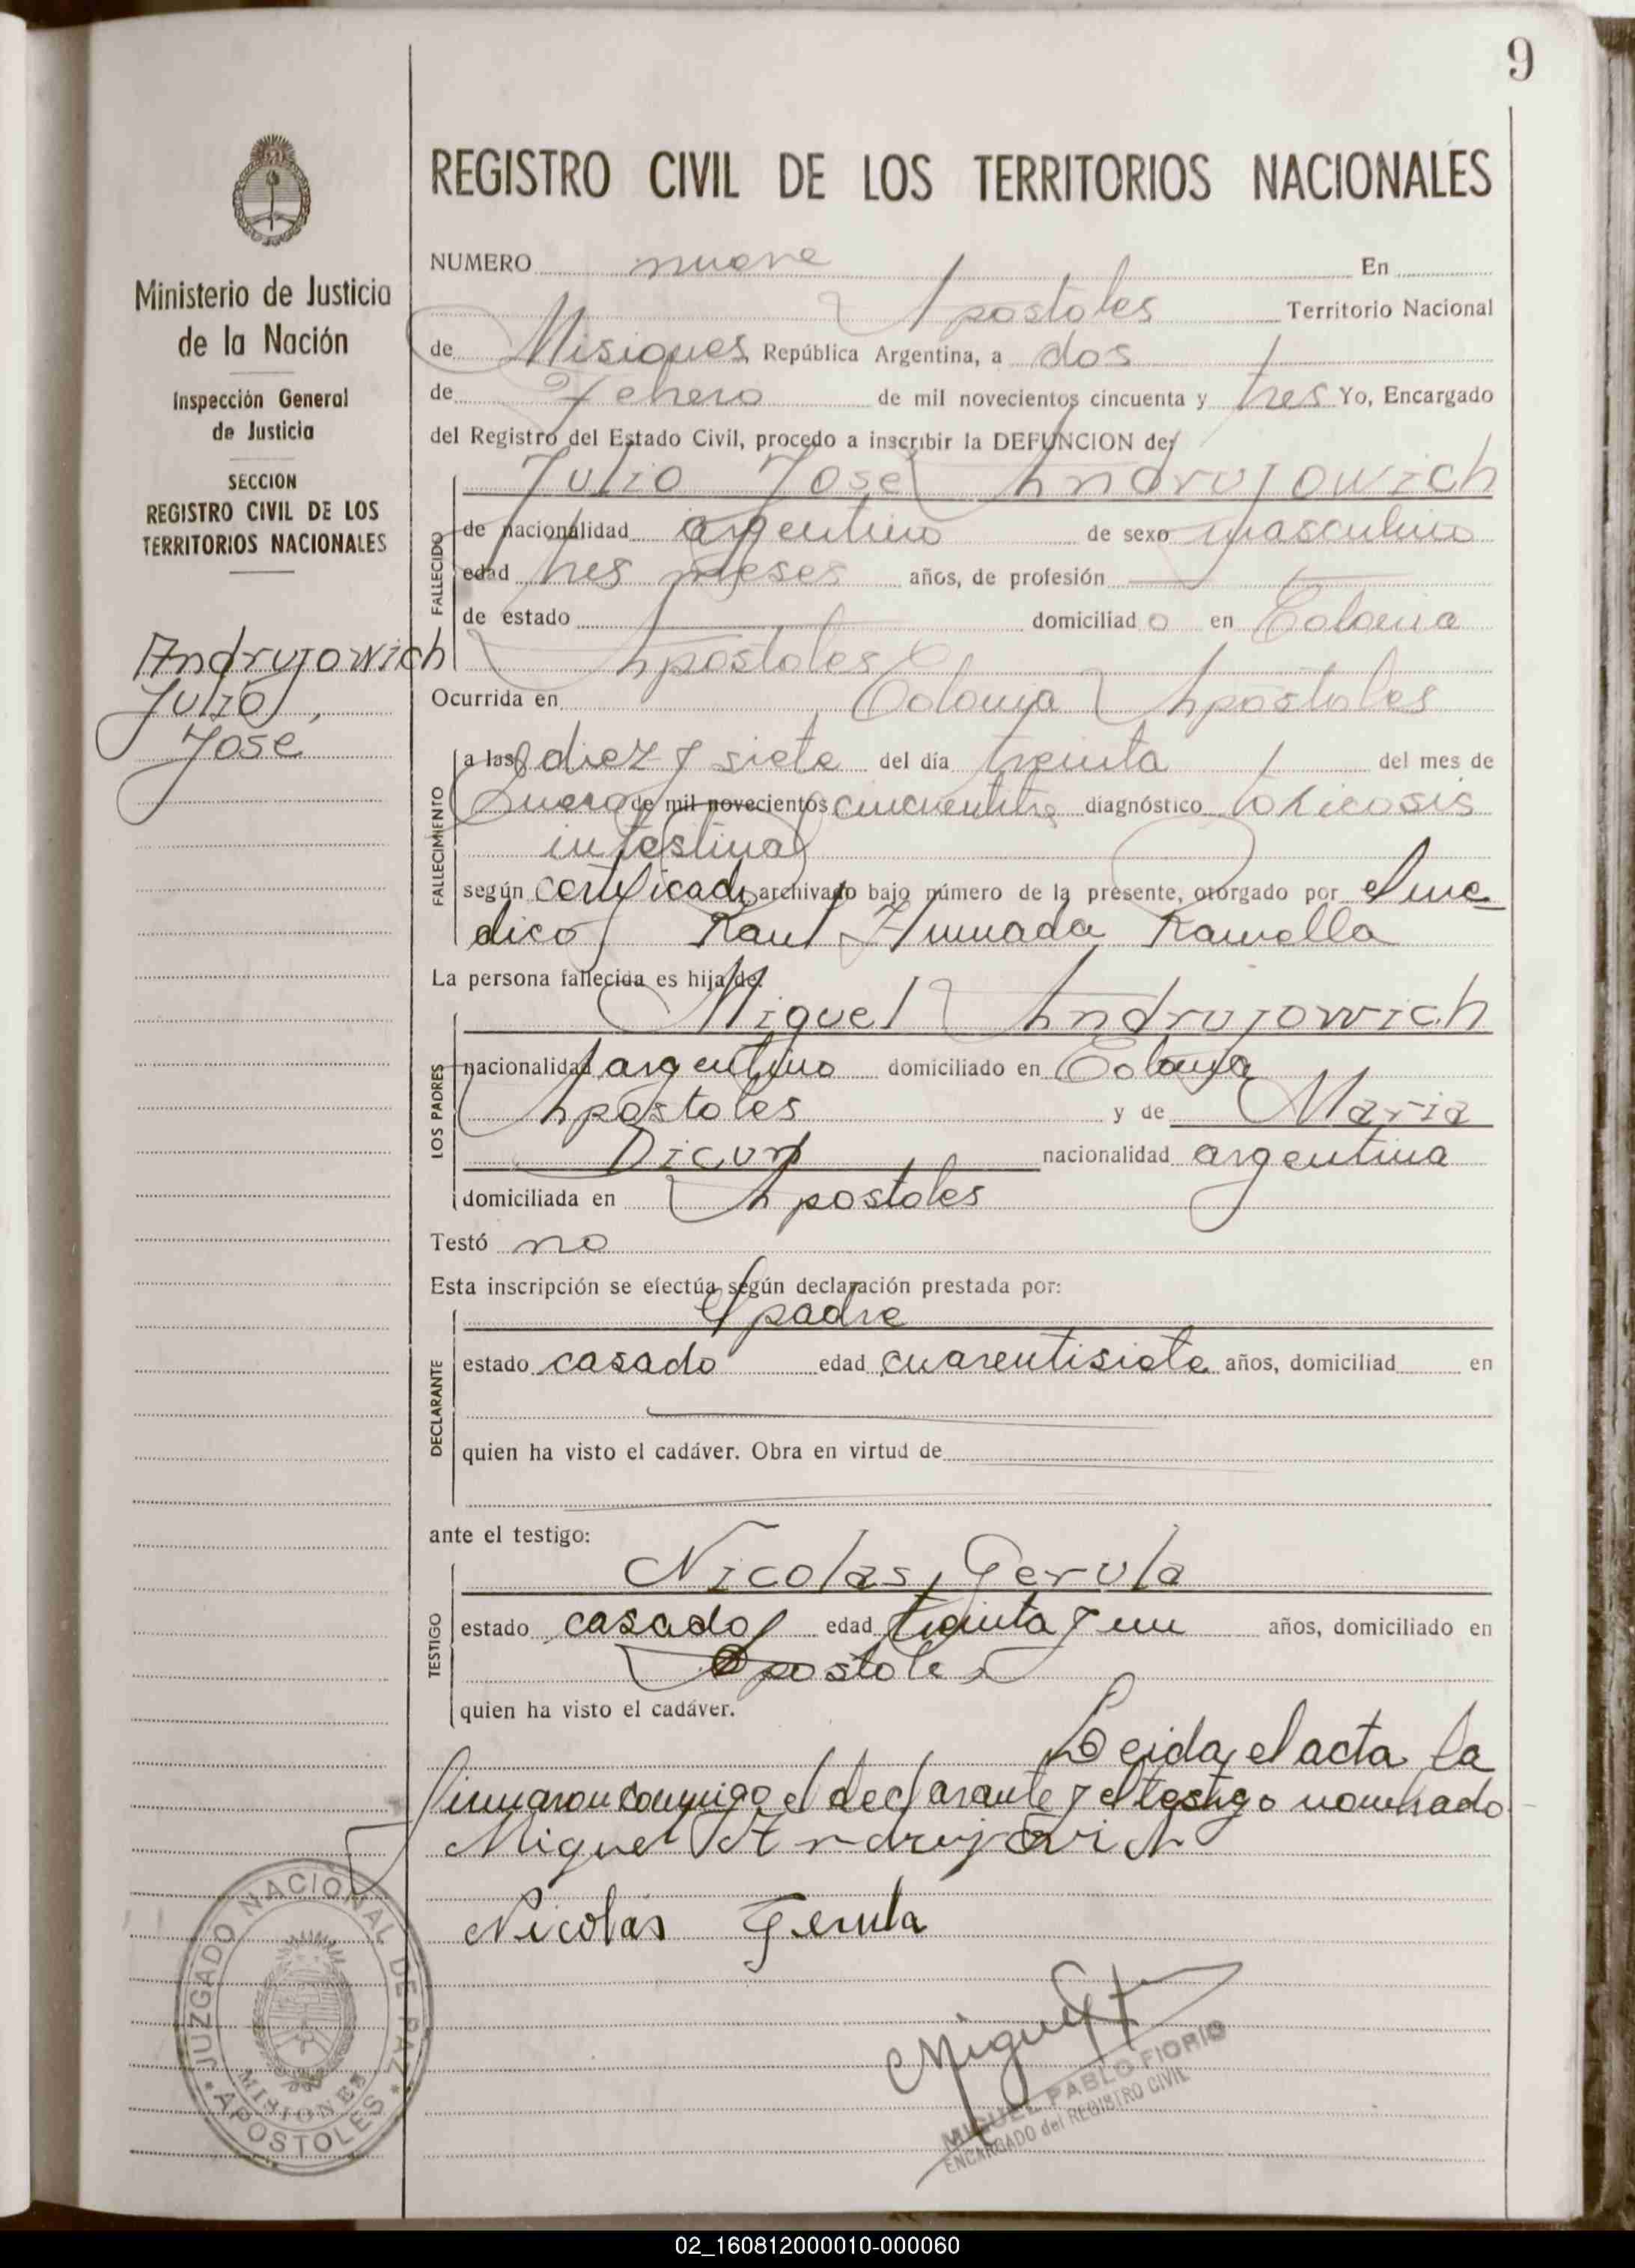 9
REGISTRO CIVIL DE LOS TERRITORIOS NACIONALES
Ministerio de Justicia
de la Nación
Inspección General
de Justicia
SECCION
REGISTRO CIVIL DE LOS
TERRITORIOS NACIONALES
Andrujowich
Julio,
José
NUMERO nueve En
Apostoles Territorio Nacional
de Misiones República Argentina, a dos
de Febrero de mil novecientos cincuenta y tres Yo, Encargado
del Registro del Estado Civil, procedo a inscribir la DEFUNCION de:
Julio José Andrujowich
FALLECIDO
de nacionalidad argentino de sexo masculino
edad tres meses años, de profesión
de estado domiciliado en Colonia
Apostoles
Ocurrida en Colonia Apostoles
FALLECIMIENTO
a las diez y siete del día treinta del mes de
Enero de mil novecientos cincuentitres diagnóstico toxicosis
intestinal
según certificado archivado bajo número de la presente, otorgado por el me-
dico Raul Ramella
La persona fallecida es hija de:
LOS PADRES
Miguel Andrujowich
nacionalidad argentino domiciliado en Colonia
Apostoles y de Maria
Dicun nacionalidad argentina
domiciliada en Apostoles
Testó no
Esta inscripción se efectúa según declaración prestada por:
DECLARANTE
el padre
estado casado edad cuarentisiete años, domiciliad en
quien ha visto el cadáver. Obra en virtud de
ante el testigo:
TESTIGO
Nicolas Gerula
estado casado edad treinta y un años, domiciliado en
Apostoles
quien ha visto el cadáver.
Leida el acta la
firmaron conmigo el declarante y el testigo nombrado
Miguel Andrujovich
Nicolás Gerula
JUZGADO NACIONAL DE PAZ
MISIONES
APOSTOLES
MIGUEL PABLO FIORIO
ENCARGADO del REGISTRO CIVIL
02_160812000010-000060